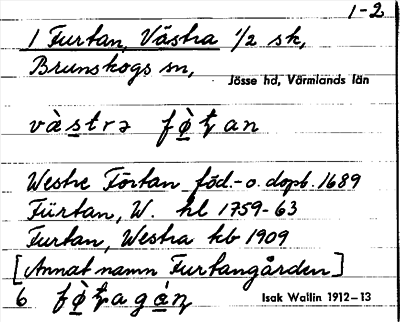 1-2
1 Furtan, Västra 1/2 sk,
Brunskogs sn,
Jösse hd, Värmlands län
Westre Förtan föd.-o. dopb. 1689
Fürtan, W. hl 1759-63
Furtan, Westra kb 1909
[Annat namn Furtangården]
6
Isak Wallin 1912-13